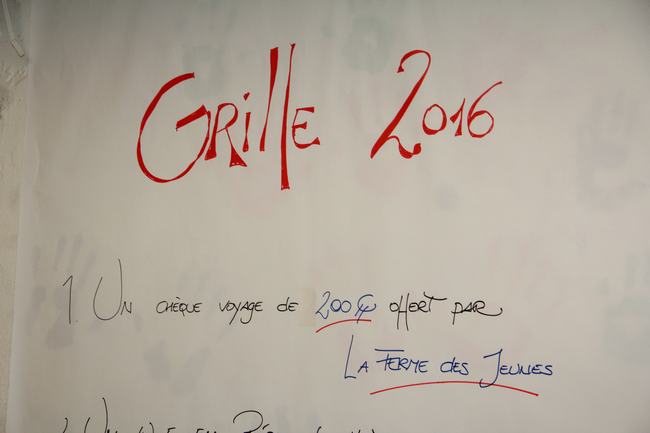 GRillE 2016
1. UN CHÈQUE VOYAGE DE 200€ OFFERT PAR
LA FERME DES JEUNES